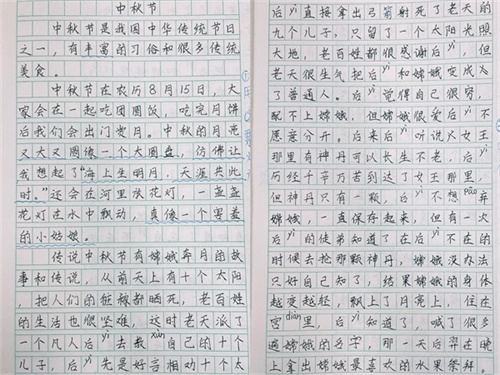 中秋节
中秋节是我国中华传统节日
之一，有丰富的习俗和很多传统
美食。
中秋节在农历8月15日，大
家会在一起吃团圆饭，吃完月饼
后我们会出门赏月。中秋的月亮
又大又圆像一个大圆盘，仿佛让
我想起了"海上生明月，天涯共此
时。"还会在河里放花灯，一盏盏
花灯在水中飘动，真像一个害羞
的小姑娘。
传说中秋节有嫦娥奔月的故
事和传说，从前天上有十个太阳
，把人们的都晒死，老百姓
的生活也很坚难，这时老天派了
一个凡人后yì去教xùn自己的十个
儿子，后yì先是好言相劝十个太
后yì直接拿出弓箭射死了老天的
九个儿子，只留了一个太阳光照
大地，老百姓都很感谢后yì，但
老天很生气把后yì和嫦娥变成为
了普通人。后yì觉得自己很穷，
配不上嫦娥，但嫦娥很爱后yì不
愿意分开。后来后yì听说女王
那里有神丹可以长生不老，后yì
历经千辛万苦到达了女王那里，
但神丹只有一颗，后yì不想pāo弃
嫦娥，一直保存起来，但有一次
后yì的徒弟知道了在后yì不在的
时候去抢那颗神丹，嫦娥没办法
只好自己知了，结果嫦娥的身体
越变越轻，飘上了月亮上，住在
宫diàn里，后yì知道了，喊了很多
遍嫦娥的名字，那一天后羿在晚
上拿出嫦娥最喜欢的水果祭拜。